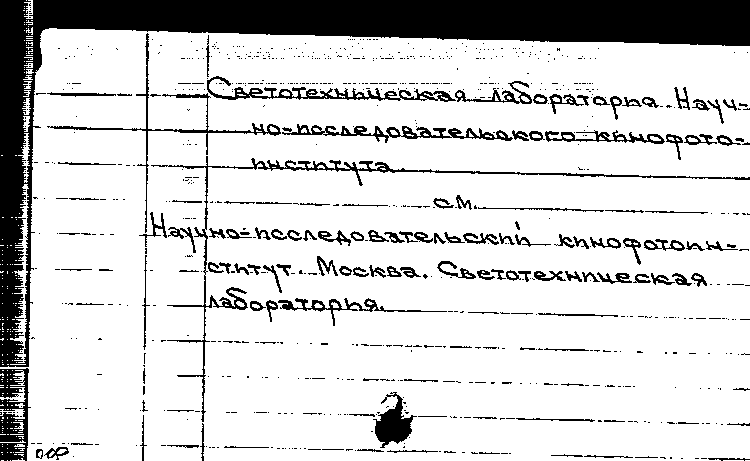 Светотехническая лаборатория Науч-
но-исследовательского кинофото-
института.
см.
Научно-исследовательский кинофотоин-
ститут. Москва. Светотехническая
лаборатория.